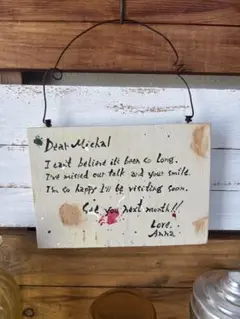 Dear Mickal
I can't believe it's been so long.
I've missed our talk and your smile.
I'm so happy I'll be visiting soon.
See you next month!!
Love,
Anna